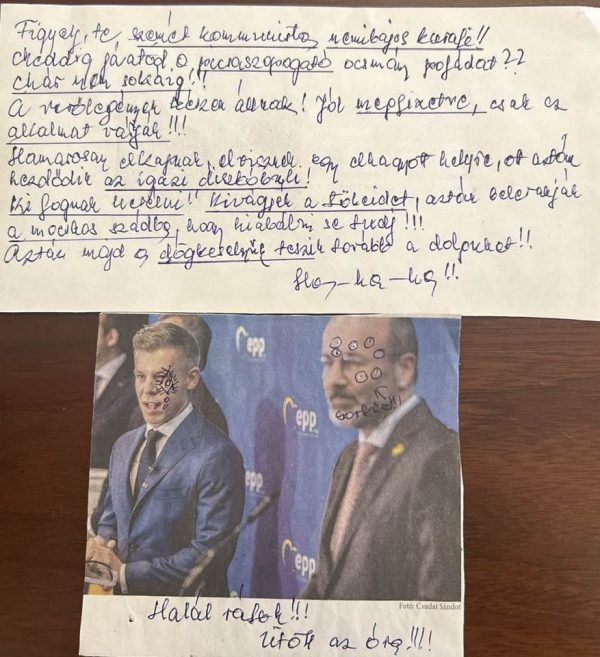 Figyelj, te szemét kommunista, nemibajos kurafi!!
Meddig játatod a picsaszopogató ocsmány pofádat??
Már nem sokáig!!!
A verőlegények készen állnak! Jól megfizetve, csak az
alkalmat várják!!!
Hamarosan elkapnak, elvisznek egy elhagyot helyre, ot aztán
kezdődik az igazi diszkóbuli!
Ki fognak herélni!! Kivágják a tökeidet, aztán belerakják
a mocskos szádba, hogy kiabálni se tudj!!!
Aztán majd a dögkeselyűk teszik tovább a dolgukat!!
Ha-ha-ha!!
epp
epp
epp
Fotó: Csudai Sándor
Halál rátok!!!
Ütött az óra!!!!